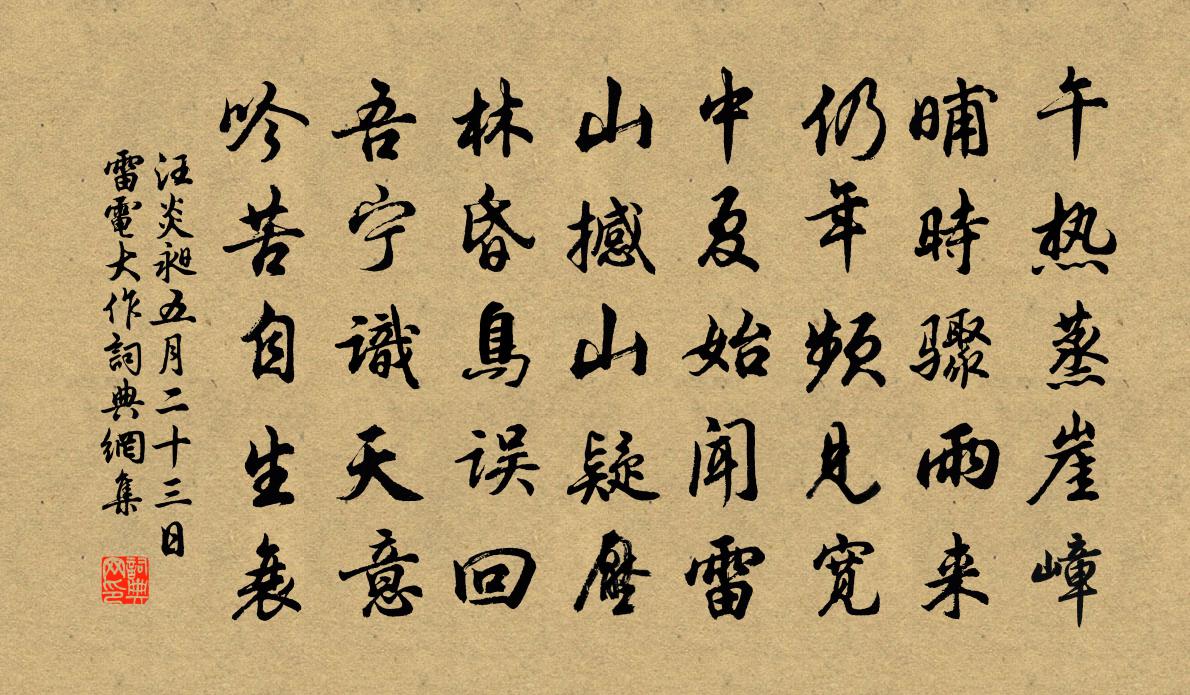 午热蒸崖嶂
晡時驟雨来
仍年频見寛
中夏始闻雷
山撼山疑壓
林昏鳥误回
吾宁識天意
吟苦自生衰
汪炎昶五月二十三日
雷電大作詞典網集
詞典
网印